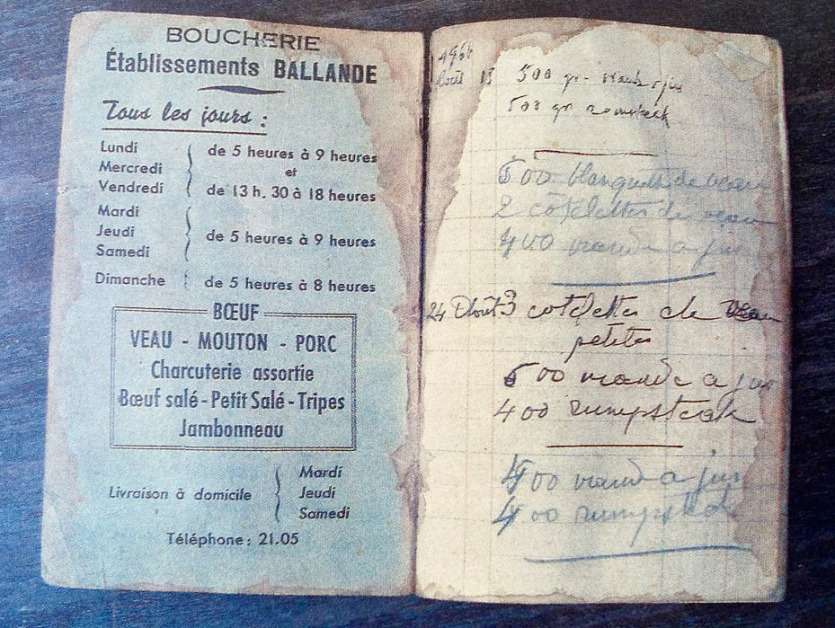 BOUCHERIE
Établissements BALLANDE
Tous les jours :
Lundi
Mercredi
Vendredi
de 5 heures à 9 heures
et
de 13 h. 30 à 18 heures
Mardi
Jeudi
Samedi
de 5 heures à 9 heures
Dimanche de 5 heures à 8 heures
BŒUF
VEAU - MOUTON - PORC
Charcuterie assortie
Bœuf salé - Petit Salé - Tripes
Jambonneau
Livraison à domicile
Mardi
Jeudi
Samedi
Téléphone : 21.05
Août 500 gr
500 gr
500 blanquette de veau
2 côtelettes de veau
400 viande a jus
24 Août 3 cotelettes de veau
petites
500 viande a jus
400 rumpsteak
400 viande a jus
400 rumpsteak